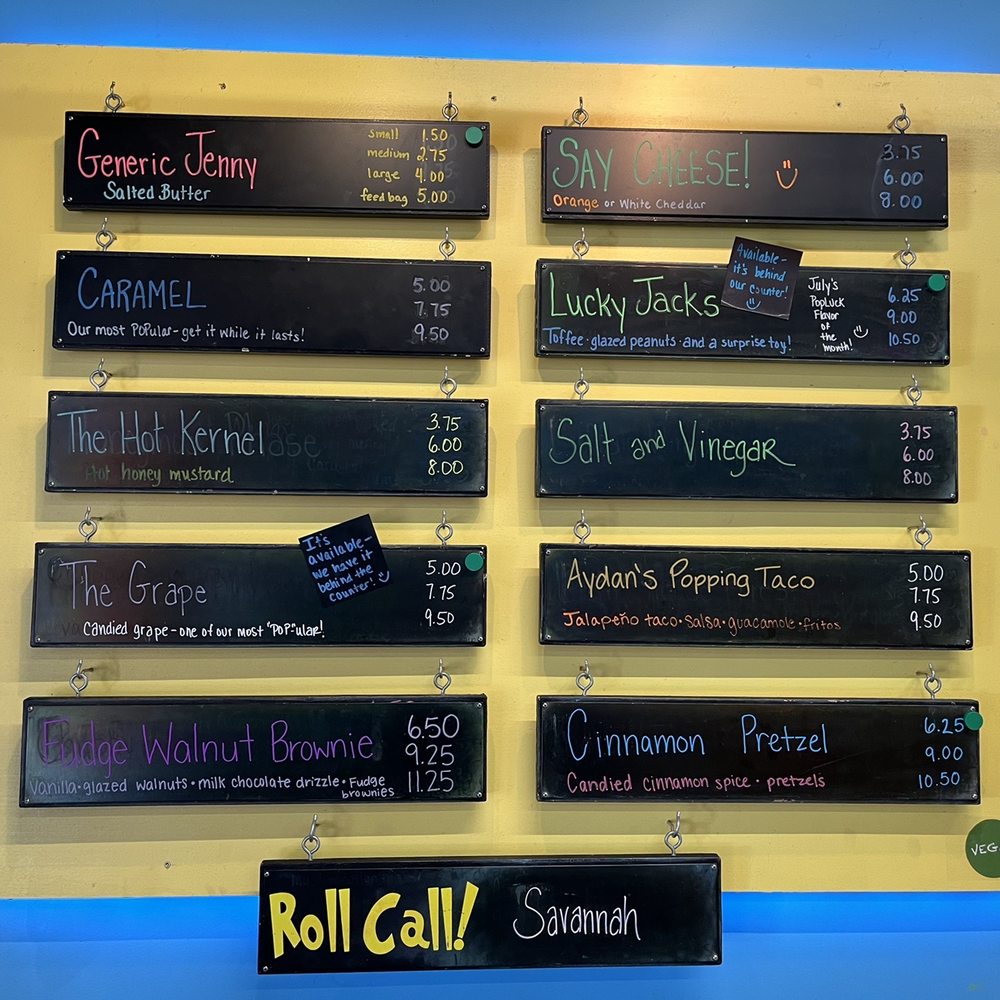 Generic Jenny
Salted Butter
small 1.50
medium 2.75
large 4.00
feed bag 5.00
CARAMEL
Our most POPular - get it while it lasts!
5.00
7.75
9.50
The Hot Kernel
Hot honey mustard
3.75
6.00
8.00
The Grape
Candied grape - one of our most "POP"ular!
It's
available -
we have it
behind the
counter!
5.00
7.75
9.50
Fudge Walnut Brownie
Vanilla · glazed walnuts · milk chocolate drizzle · Fudge
brownies
6.50
9.25
11.25
SAY CHEESE!
Orange or White Cheddar
3.75
6.00
8.00
Lucky Jacks
Toffee · glazed peanuts · and a surprise toy!
Available -
it's behind
our counter!
July's
PopLuck
Flavor
of
the
month!
6.25
9.00
10.50
Salt and Vinegar
3.75
6.00
8.00
Aydan's Popping Taco
Jalapeño taco · salsa · guacamole · fritos
5.00
7.75
9.50
Cinnamon Pretzel
Candied cinnamon spice · pretzels
6.25
9.00
10.50
VEG
Roll Call! Savannah